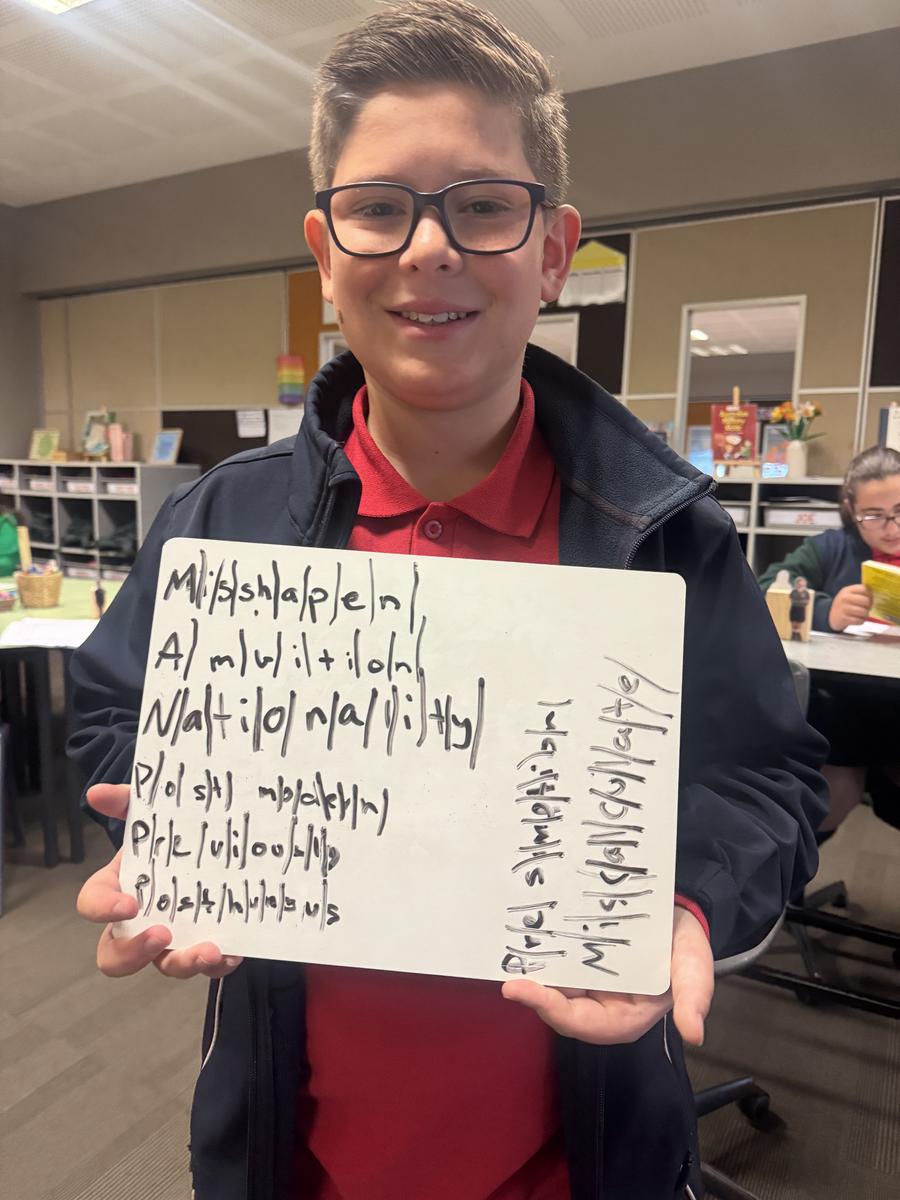 M/i/s/sh/a/p/e/n/
A/m/v/i/t/i/o/n/
N/a/t/i/o/n/a/l/i/t/y/
P/o/st/ m/o/a/t/r/n/
P/r/e/v/i/ou/s/l/y
P/r/e/s/m/p/t/i/o/n/
M/i/s/c/a/l/c/u/l/a/t/e/